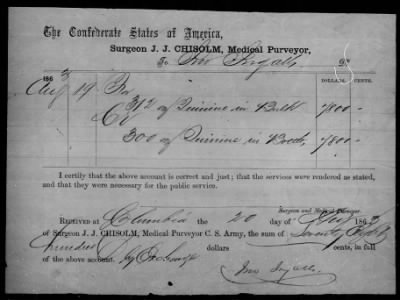 The Confederate States of America,
Surgeon J. J. CHISOLM, Medical Purveyor,
To Jno Ingalls
DOLLARS. CENTS.
1863
Aug 19 For
312 oz Quinine in Bulk 7800 —
300 oz Quinine in 7800 —
I certify that the above account is correct and just; that the services were rendered as stated,
and that they were necessary for the public service.
Surgeon and Medical Purveyor.
RECEIVED AT Columbia the 20 day of Aug 1863
of Surgeon J. J. CHISOLM, Medical Purveyor C. S. Army, the sum of Seventy Eight
hundred dollars cents, in full
of the above account.
Jno Ingalls